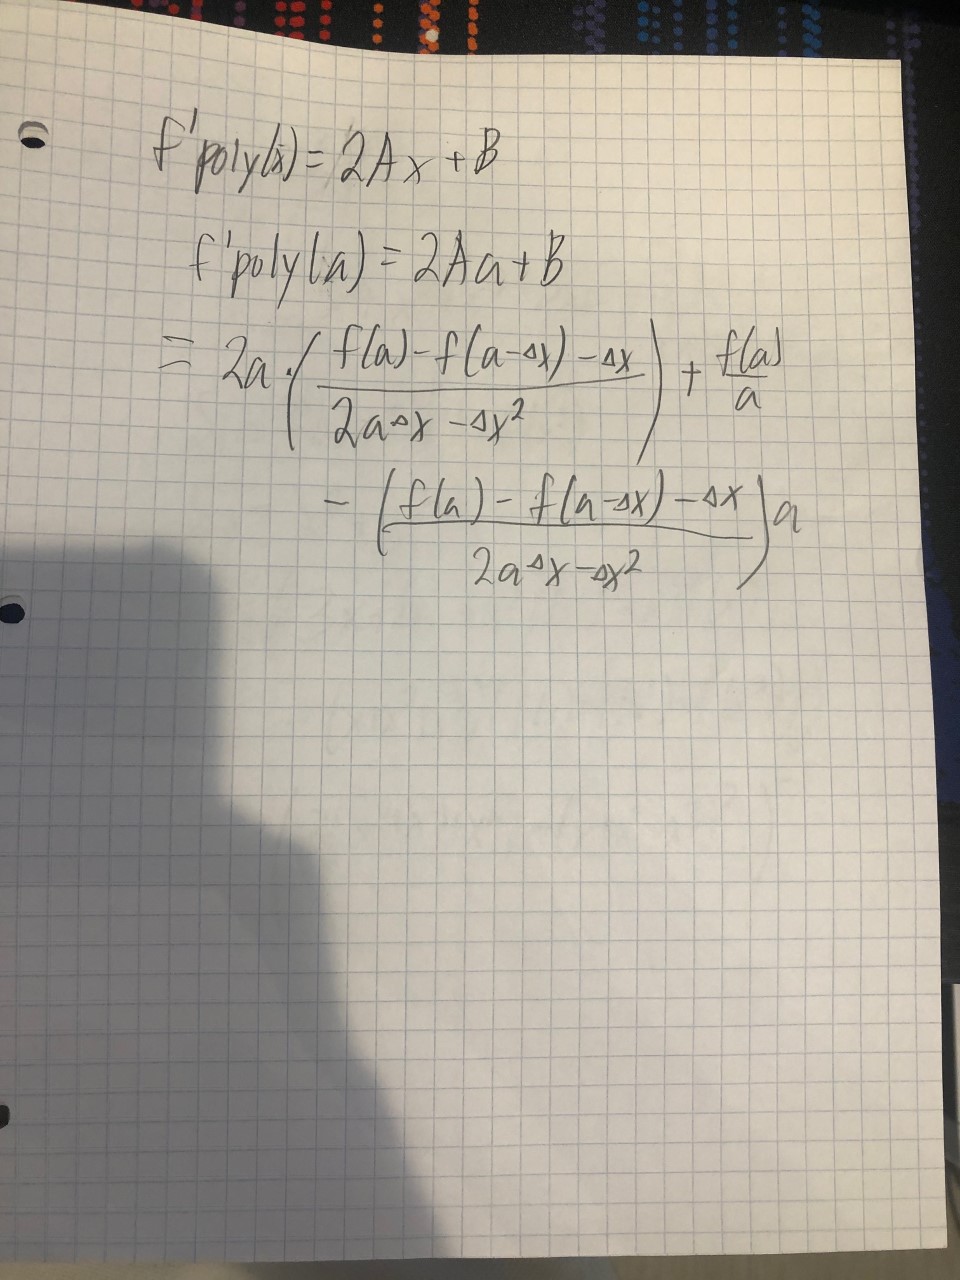 f'poly(x) = 2Ax + B
f'poly(a) = 2Aa + B
= 2a · ( (f(a) - f(a-Δx) - Δx) / (2aΔx - Δx²) ) + f(a)/a
- ( (f(a) - f(a-Δx) - Δx) / (2aΔx - Δx²) ) a